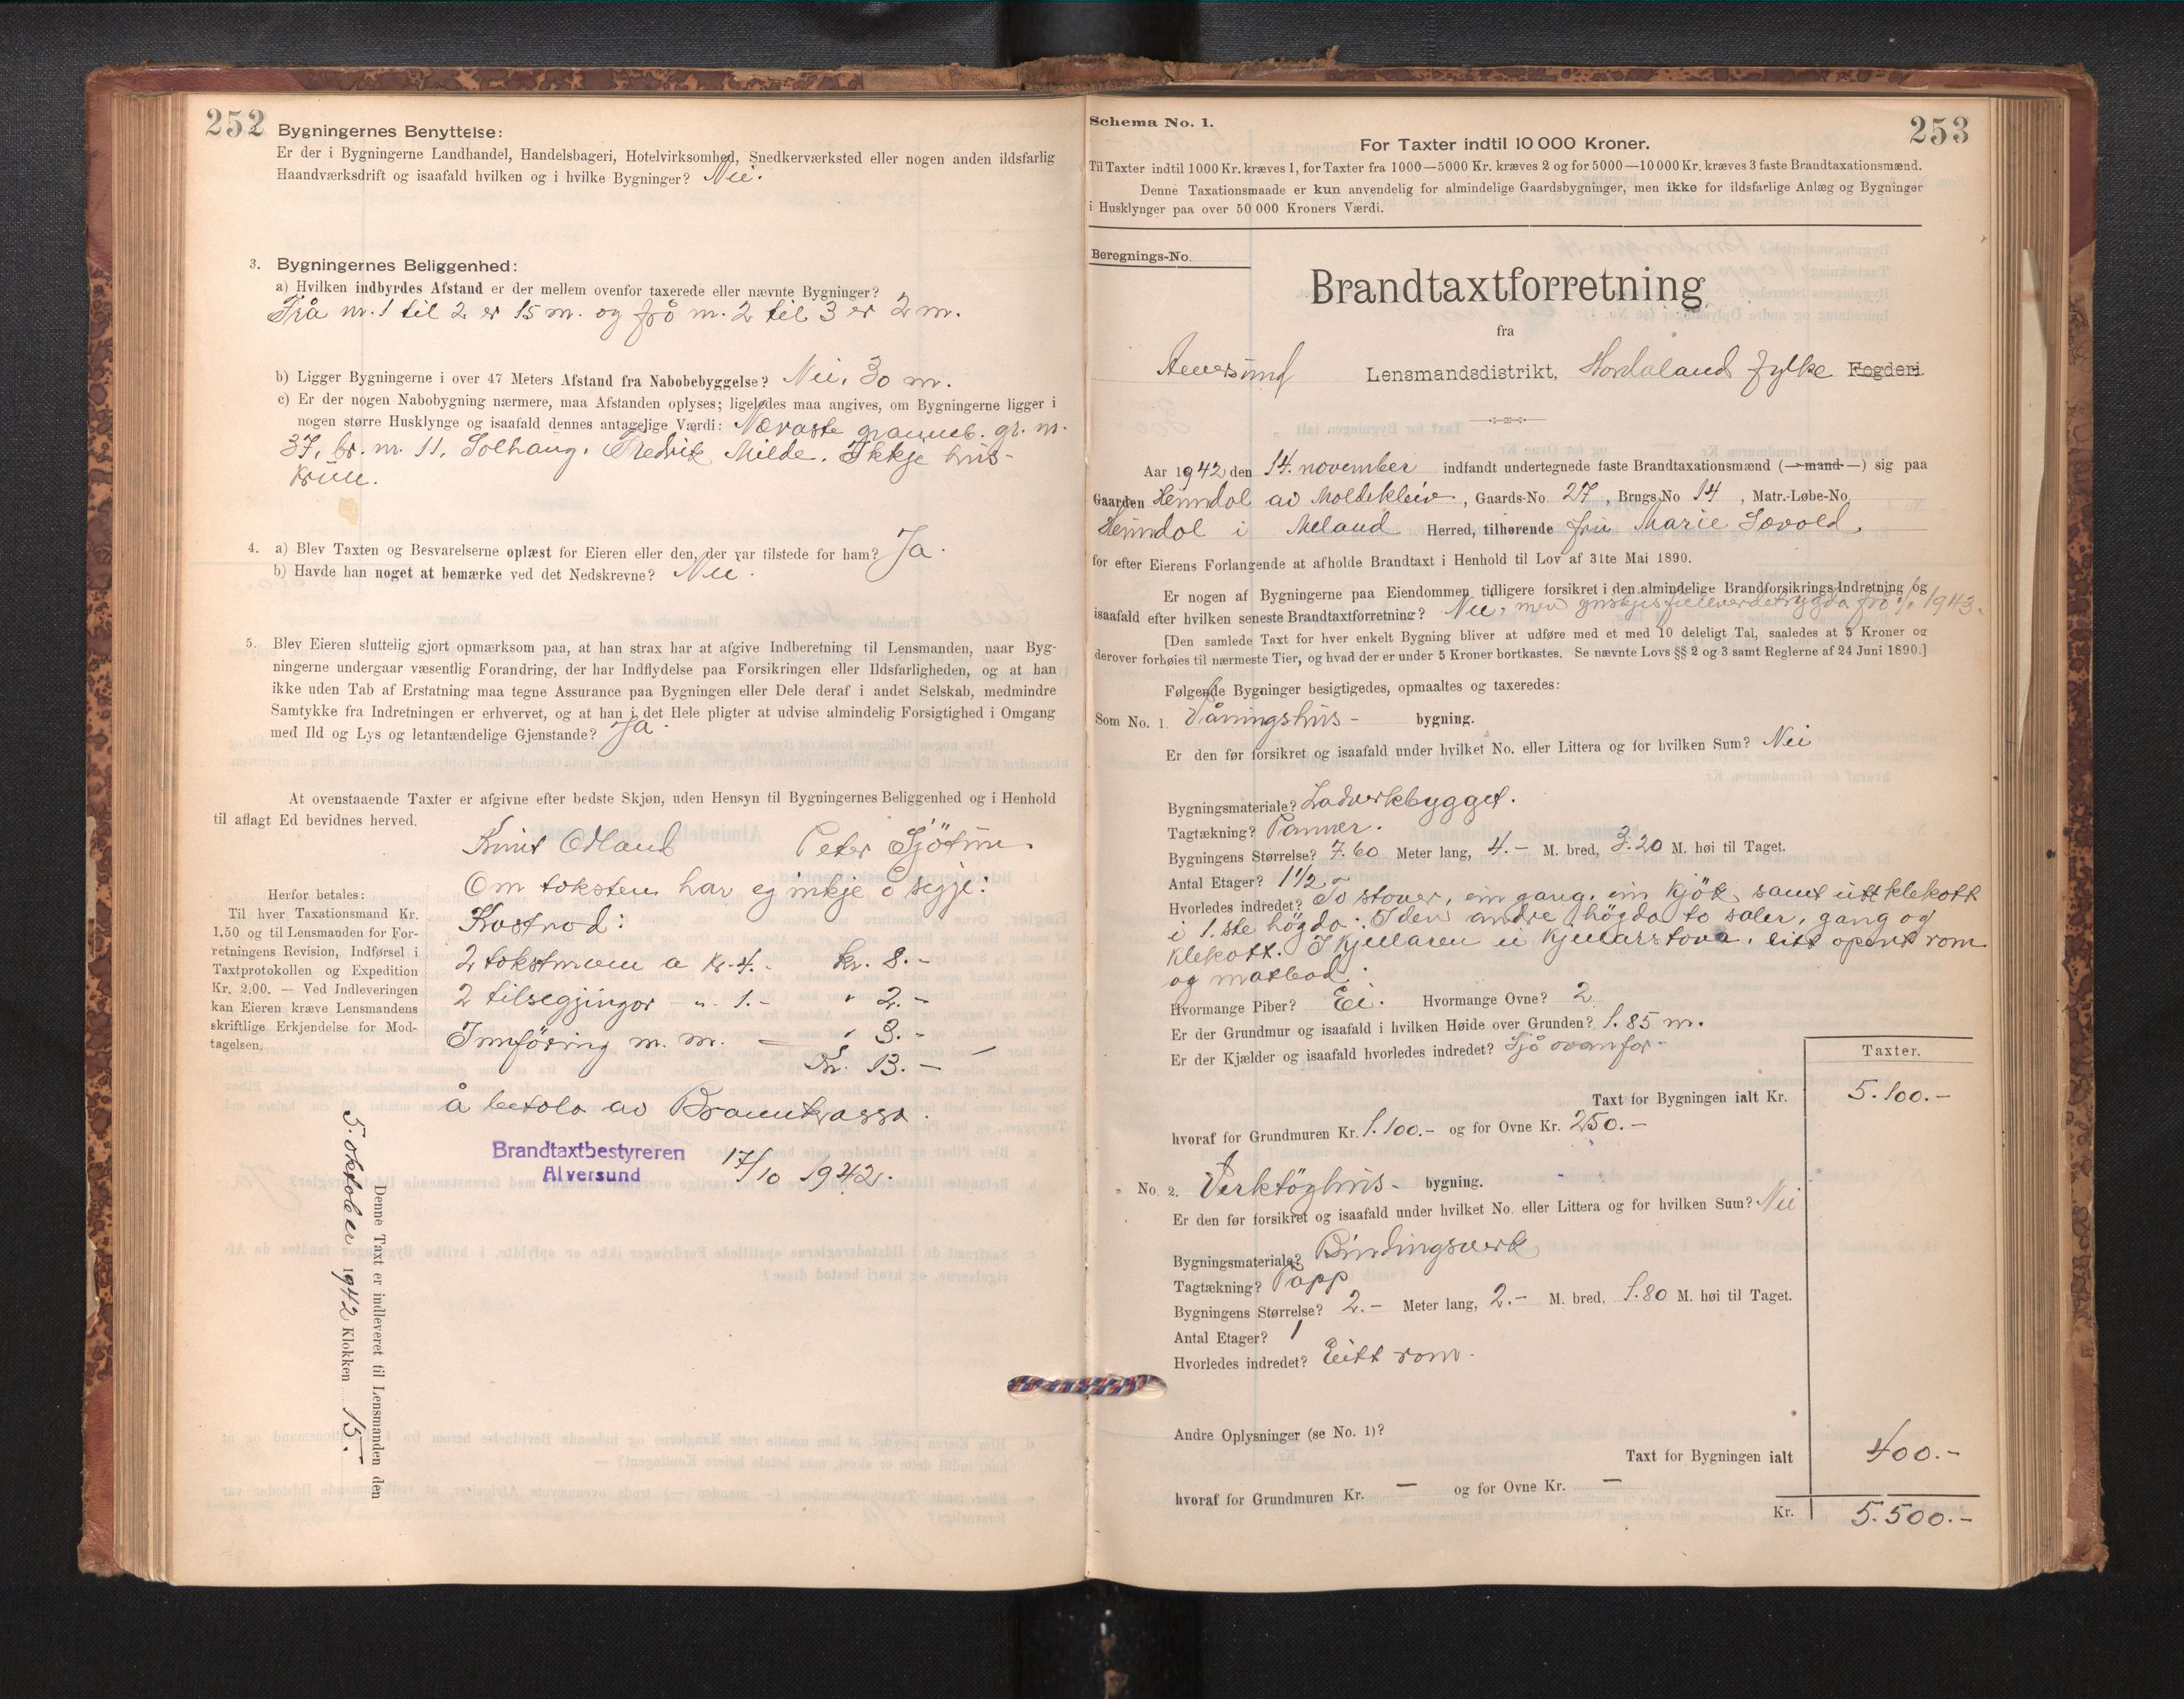 252
Bygningernes Benyttelse:
Er der i Bygningerne Landhandel, Handelsbageri, Hotelvirksomhed, Snedkerværksted eller nogen anden ildsfarlig
Haandværksdrift og isaafald hvilken og i hvilke Bygninger? Nei.
3. Bygningernes Beliggenhed:
a) Hvilken indbyrdes Afstand er der mellem ovenfor taxerede eller nævnte Bygninger?
Frå nr. 1 til 2 er 15 m. og frå nr. 2 til 3 er 2 m.
b) Ligger Bygningerne i over 47 Meters Afstand fra Nabobebyggelse? Nei, 30 m.
c) Er der nogen Nabobygning nærmere, maa Afstanden oplyses; ligeledes maa angives, om Bygningerne ligger i
nogen større Husklynge og isaafald dennes antagelige Værdi: Næraste granneb. gr. nr.
37, br. nr. 11, Solhaug, Fredrik Milde. Ikkje hus-
krull.
4. a) Blev Taxten og Besvarelserne oplæst for Eieren eller den, der var tilstede for ham? Ja.
b) Havde han noget at bemærke ved det Nedskrevne? Nei.
5. Blev Eieren sluttelig gjort opmærksom paa, at han strax har at afgive Indberetning til Lensmanden, naar Byg-
ningerne undergaar væsentlig Forandring, der har Indflydelse paa Forsikringen eller Ildsfarligheden, og at han
ikke uden Tab af Erstatning maa tegne Assurance paa Bygningen eller Dele deraf i andet Selskab, medmindre
Samtykke fra Indretningen er erhvervet, og at han i det Hele pligter at udvise almindelig Forsigtighed i Omgang
med Ild og Lys og letantændelige Gjenstande? Ja.
At ovenstaaende Taxter er afgivne efter bedste Skjøn, uden Hensyn til Bygningernes Beliggenhed og i Henhold
til aflagt Ed bevidnes herved.
Knut Odland Peter Sjötun.
Om taksten har eg inkje å segje:
Kostnad:
2 takstmenn a kr. 4.- kr. 8.-
2 tilsegjingar - " 1.- " 2.-
Innföring m. m. " 3.-
Kr. 13.-
å betala av Brannkassa.
Brandtaxtbestyreren
Alversund
17/10 1942.
Herfor betales:
Til hver Taxationsmand Kr.
1,50 og til Lensmanden for For-
retningens Revision, Indførsel i
Taxtprotokollen og Expedition
Kr. 2.00. — Ved Indleveringen
kan Eieren kræve Lensmandens
skriftlige Erkjendelse for Mod-
tagelsen.
Denne Taxt er indleveret til Lensmanden den
5. oktober 1942 Klokken 15.
253
Schema No. 1.
For Taxter indtil 10 000 Kroner.
Til Taxter indtil 1000 Kr. kræves 1, for Taxter fra 1000—5000 Kr. kræves 2 og for 5000—10000 Kr. kræves 3 faste Brandtaxationsmænd.
Denne Taxationsmaade er kun anvendelig for almindelige Gaardsbygninger, men ikke for ildsfarlige Anlæg og Bygninger
i Husklynger paa over 50 000 Kroners Værdi.
Beregnings-No.
Brandtaxtforretning
fra
Alversund Lensmandsdistrikt, Hordaland fylke Fogderi.
Aar 1942 den 14. november indfandt undertegnede faste Brandtaxationsmænd (—mand—) sig paa
Gaarden Heimdal av Moldekleiv, Gaards-No. 27, Brugs-No 14, Matr.-Løbe-No.
Heimdal i Meland Herred, tilhørende fru Marie Sævold.
for efter Eierens Forlangende at afholde Brandtaxt i Henhold til Lov af 31te Mai 1890.
Er nogen af Bygningerne paa Eiendommen tidligere forsikret i den almindelige Brandforsikrings-Indretning og
isaafald efter hvilken seneste Brandtaxtforretning? Nei, men ynskjes fullverdetrygda frå 1/1 1943.
[Den samlede Taxt for hver enkelt Bygning bliver at udføre med et med 10 deleligt Tal, saaledes at 5 Kroner og
derover forhøies til nærmeste Tier, og hvad der er under 5 Kroner bortkastes. Se nævnte Lovs §§ 2 og 3 samt Reglerne af 24 Juni 1890.]
Følgende Bygninger besigtigedes, opmaaltes og taxeredes:
Som No. 1. Våningshus- bygning.
Er den før forsikret og isaafald under hvilket No. eller Littera og for hvilken Sum? Nei
Bygningsmateriale? Ladverkbygget.
Tagtækning? Panner.
Bygningens Størrelse? 7.60 Meter lang, 4.- M. bred, 3.20 M. høi til Taget.
Antal Etager? 1 1/2
Hvorledes indredet? To stover, ein gang, ein kjök, samt eitt klekott
i 1.ste högda. I den andre högda to saler, gang og
klekott. I kjellaren ei kjellarstova, eitt opent rom
og matbod.
Hvormange Piber? Ei. Hvormange Ovne? 2
Er der Grundmur og isaafald i hvilken Høide over Grunden? 1.85 m.
Er der Kjælder og isaafald hvorledes indredet? Sjå ovanfor.
Taxter.
Taxt for Bygningen ialt Kr. 5.100.-
hvoraf for Grundmuren Kr. 1.100.- og for Ovne Kr. 250.-
" No. 2. Verktöghus- bygning.
Er den før forsikret og isaafald under hvilket No. eller Littera og for hvilken Sum? Nei
Bygningsmateriale? Bindingsverk
Tagtækning? Papp
Bygningens Størrelse? 2.- Meter lang, 2.- M. bred, 1.80 M. høi til Taget.
Antal Etager? 1
Hvorledes indredet? Eitt rom.
Andre Oplysninger (se No. 1)?
Taxt for Bygningen ialt 400.-
hvoraf for Grundmuren Kr. — og for Ovne Kr. —
Kr. 5.500.-